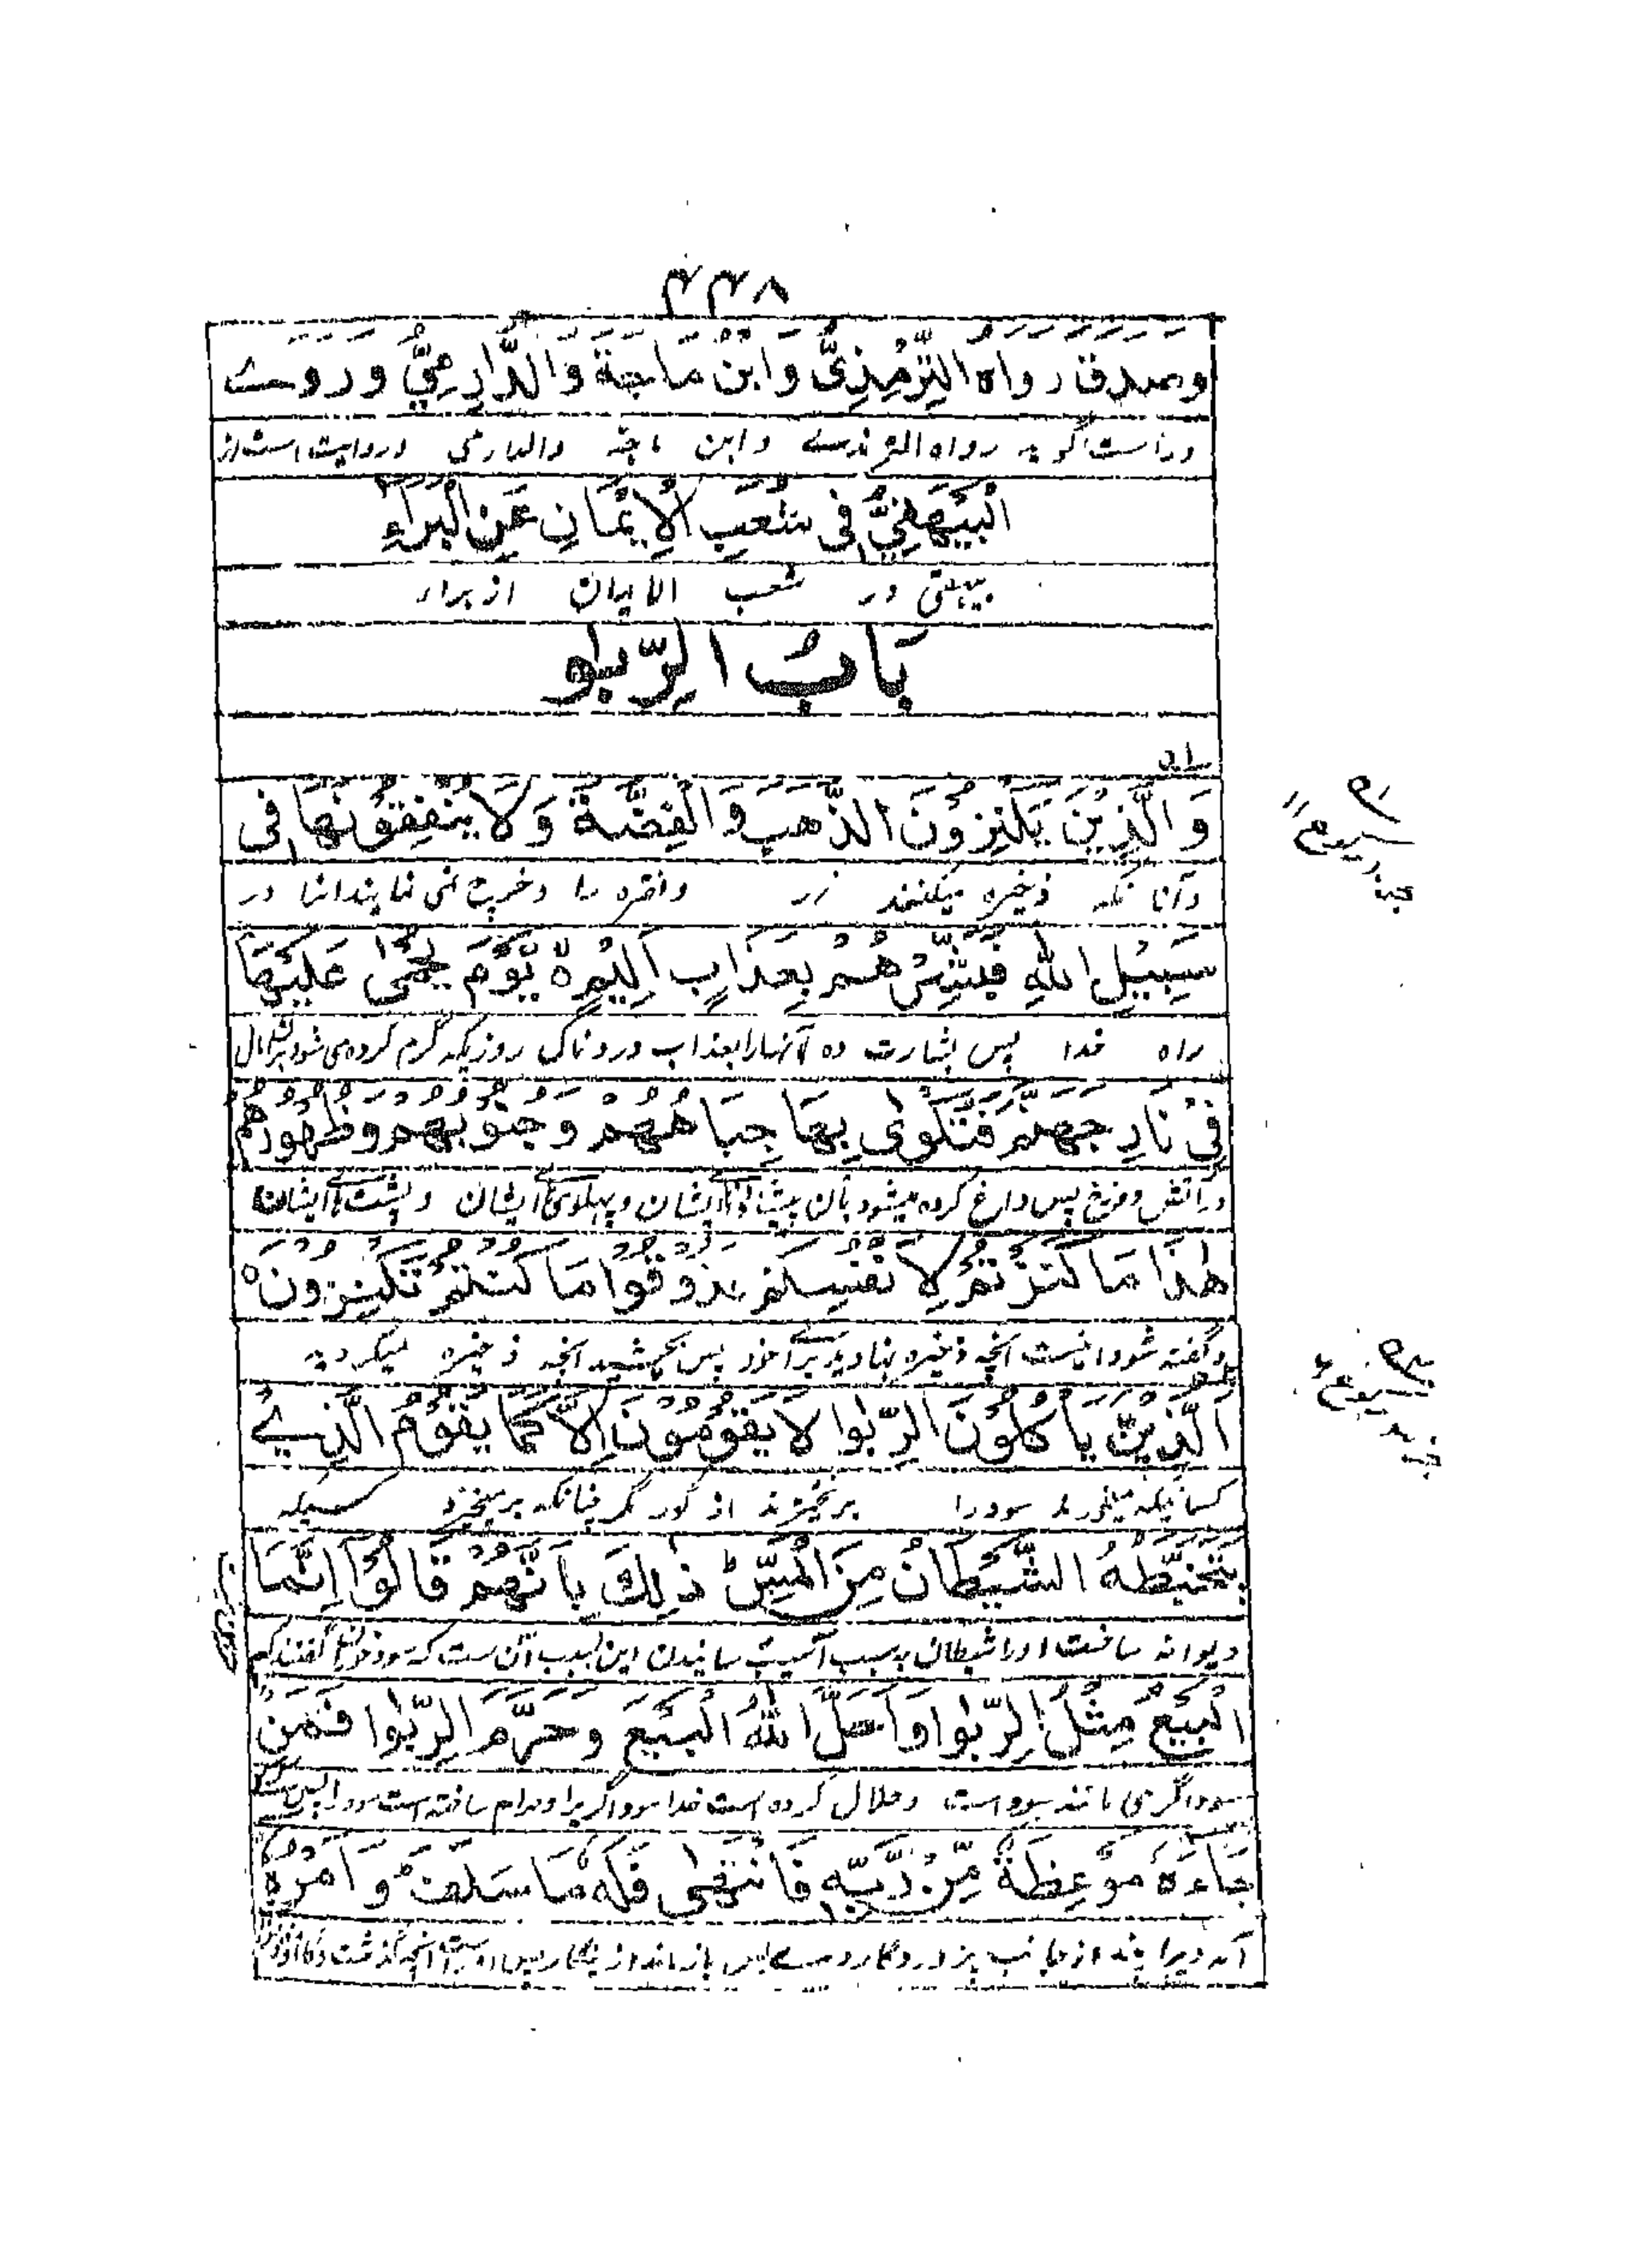 ۴۴۸
وصدق رواه التِّرْمِذِیُّ وَابْنُ مَاجَةَ وَالدَّارِمِیُّ وروت
وراست گوید رواه الترمذے وابن ماجه والدارمی وروایت است از
الْبَيْهَقِیُّ فِی شُعَبِ الْاِيْمَانِ عَنِ الْبَرَاءِ
بیهقی در شعب الایمان از براء
بَابُ الرِّبٰوا
وَالَّذِيْنَ يَكْنِزُوْنَ الذَّهَبَ وَالْفِضَّةَ وَلَا يُنْفِقُوْنَهَا فِی
وآنانکه ذخیره میکنند زر ونقره را وخرچ نمی نمایند آنرا در
سَبِيْلِ اللّٰهِ فَبَشِّرْهُمْ بِعَذَابٍ اَلِيْمٍ ه يَّوْمَ يُحْمٰی عَلَيْهَا
راه خدا پس بشارت ده آنها را بعذاب دردناک روزیکه گرم کرده می شود
فِیْ نَارِ جَهَنَّمَ فَتُكْوٰی بِهَا جِبَاهُهُمْ وَجُنُوْبُهُمْ وَظُهُوْرُهُمْ
در آتش دوزخ پس داغ کرده میشود بآن پیشانی ایشان وپهلوی ایشان وپشت ایشان
هٰذَا مَا كَنَزْتُمْ لِاَنْفُسِكُمْ فَذُوْقُوْا مَا كُنْتُمْ تَكْنِزُوْنَ ه
وگفته شود اینست آنچه ذخیره بنهادید برائے خود پس بچشید آنچه ذخیره میکردید
اَلَّذِيْنَ يَاْكُلُوْنَ الرِّبٰوا لَا يَقُوْمُوْنَ اِلَّا كَمَا يَقُوْمُ الَّذِیْ
کسانیکه میخورند سود را برنخیزند از گور مگر چنانکه برمیخیزد کسیکه
يَتَخَبَّطُهُ الشَّيْطَانُ مِنَ الْمَسِّ ط ذٰلِكَ بِاَنَّهُمْ قَالُوْا اِنَّمَا
دیوانه ساخت اورا شیطان بسبب آسیب رسانیدن این بسبب آن ست که گفتند که
الْبَيْعُ مِثْلُ الرِّبٰوا وَاَحَلَّ اللّٰهُ الْبَيْعَ وَحَرَّمَ الرِّبٰوا فَمَنْ
سوداگری مانند سود است وحلال کرده است خدا سوداگری را وحرام ساخته است سود را پس
جَاءَهُ مَوْعِظَةٌ مِّنْ رَّبِّهٖ فَانْتَهٰی فَلَهٗ مَا سَلَفَ ط وَاَمْرُهٗ
آمد ویرا پند از جانب پروردگار وے پس باز ماند آنچه گذشت